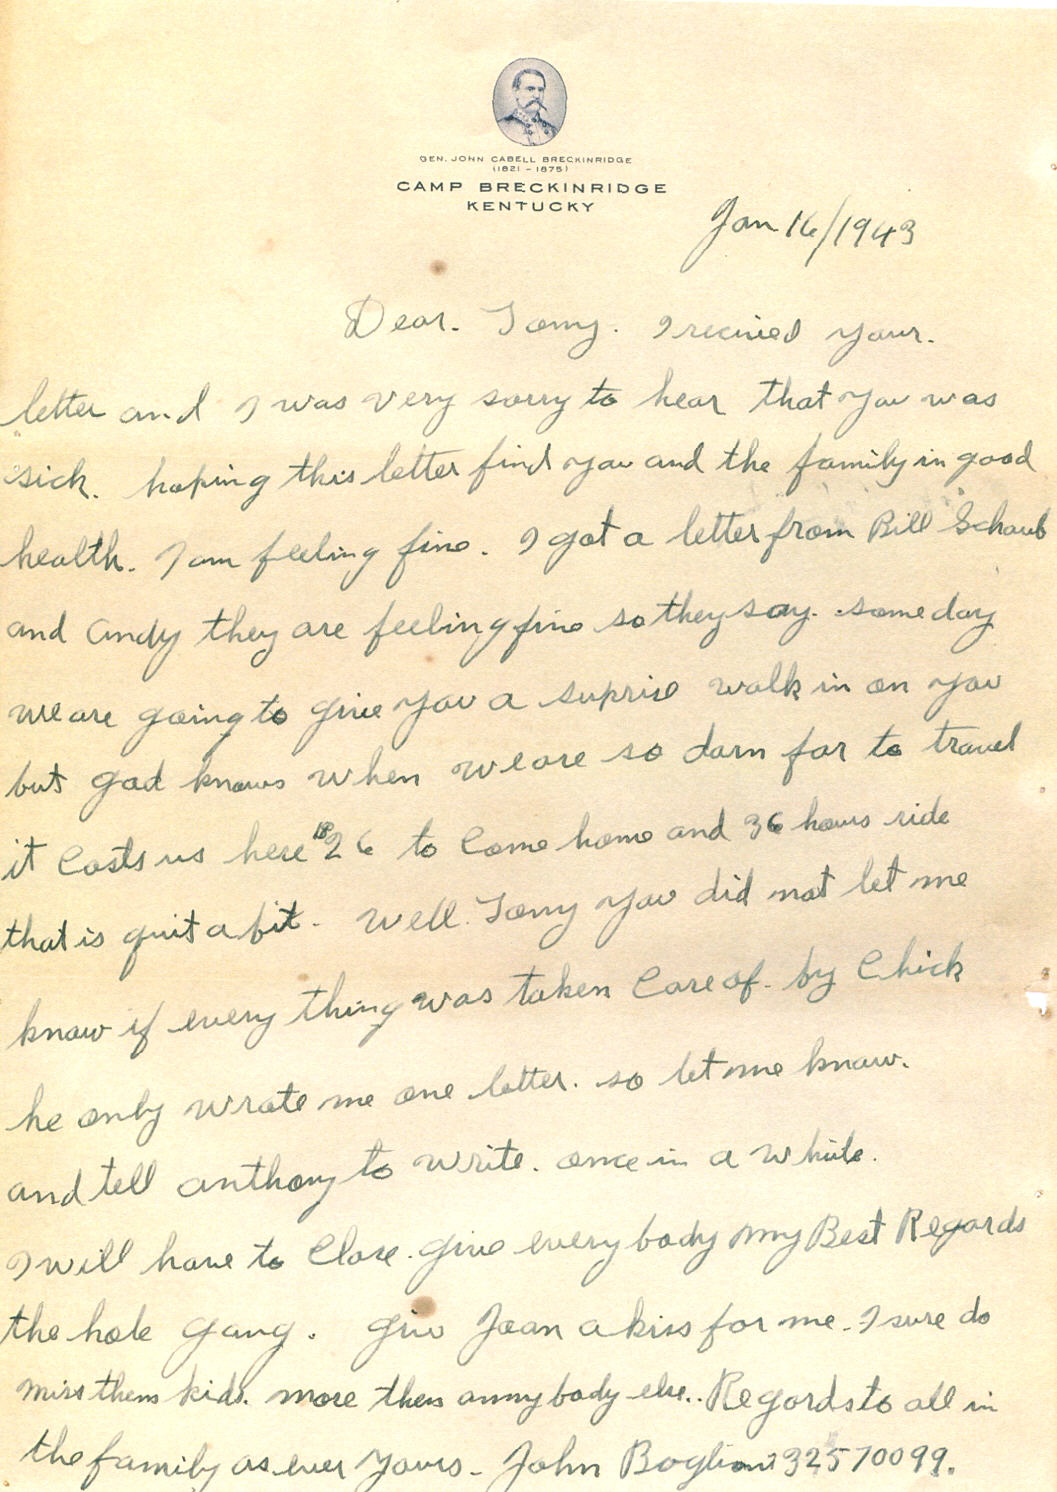 GEN. JOHN CABELL BRECKINRIDGE
(1821 - 1875)
CAMP BRECKINRIDGE
KENTUCKY
Jan 16/1943
Dear. Tomy. I recived your.
letter and I was very sorry to hear that you was
sick. hoping this letter find you and the family in good
health. I am feeling fine. I got a letter from Bill Schaub
and Andy they are feeling fine so they say. some day
we are going to give you a suprise walk in on you
but god knows when we are so darn far to travel
it Costs us here 26 to Come home and 36 hours ride
that is quit a bit. Well. Tomy you did not let me
know if every thing was taken Care of. by Chick
he only wrote me one letter. so let me know.
and tell anthony to write. once in a while.
I will have to Close. give every body my Best Regards
the hole gang. give Joan a kiss for me. I sure do
miss them kids. more then anny body else.. Regards to all in
the family as ever yours. John 32570099.